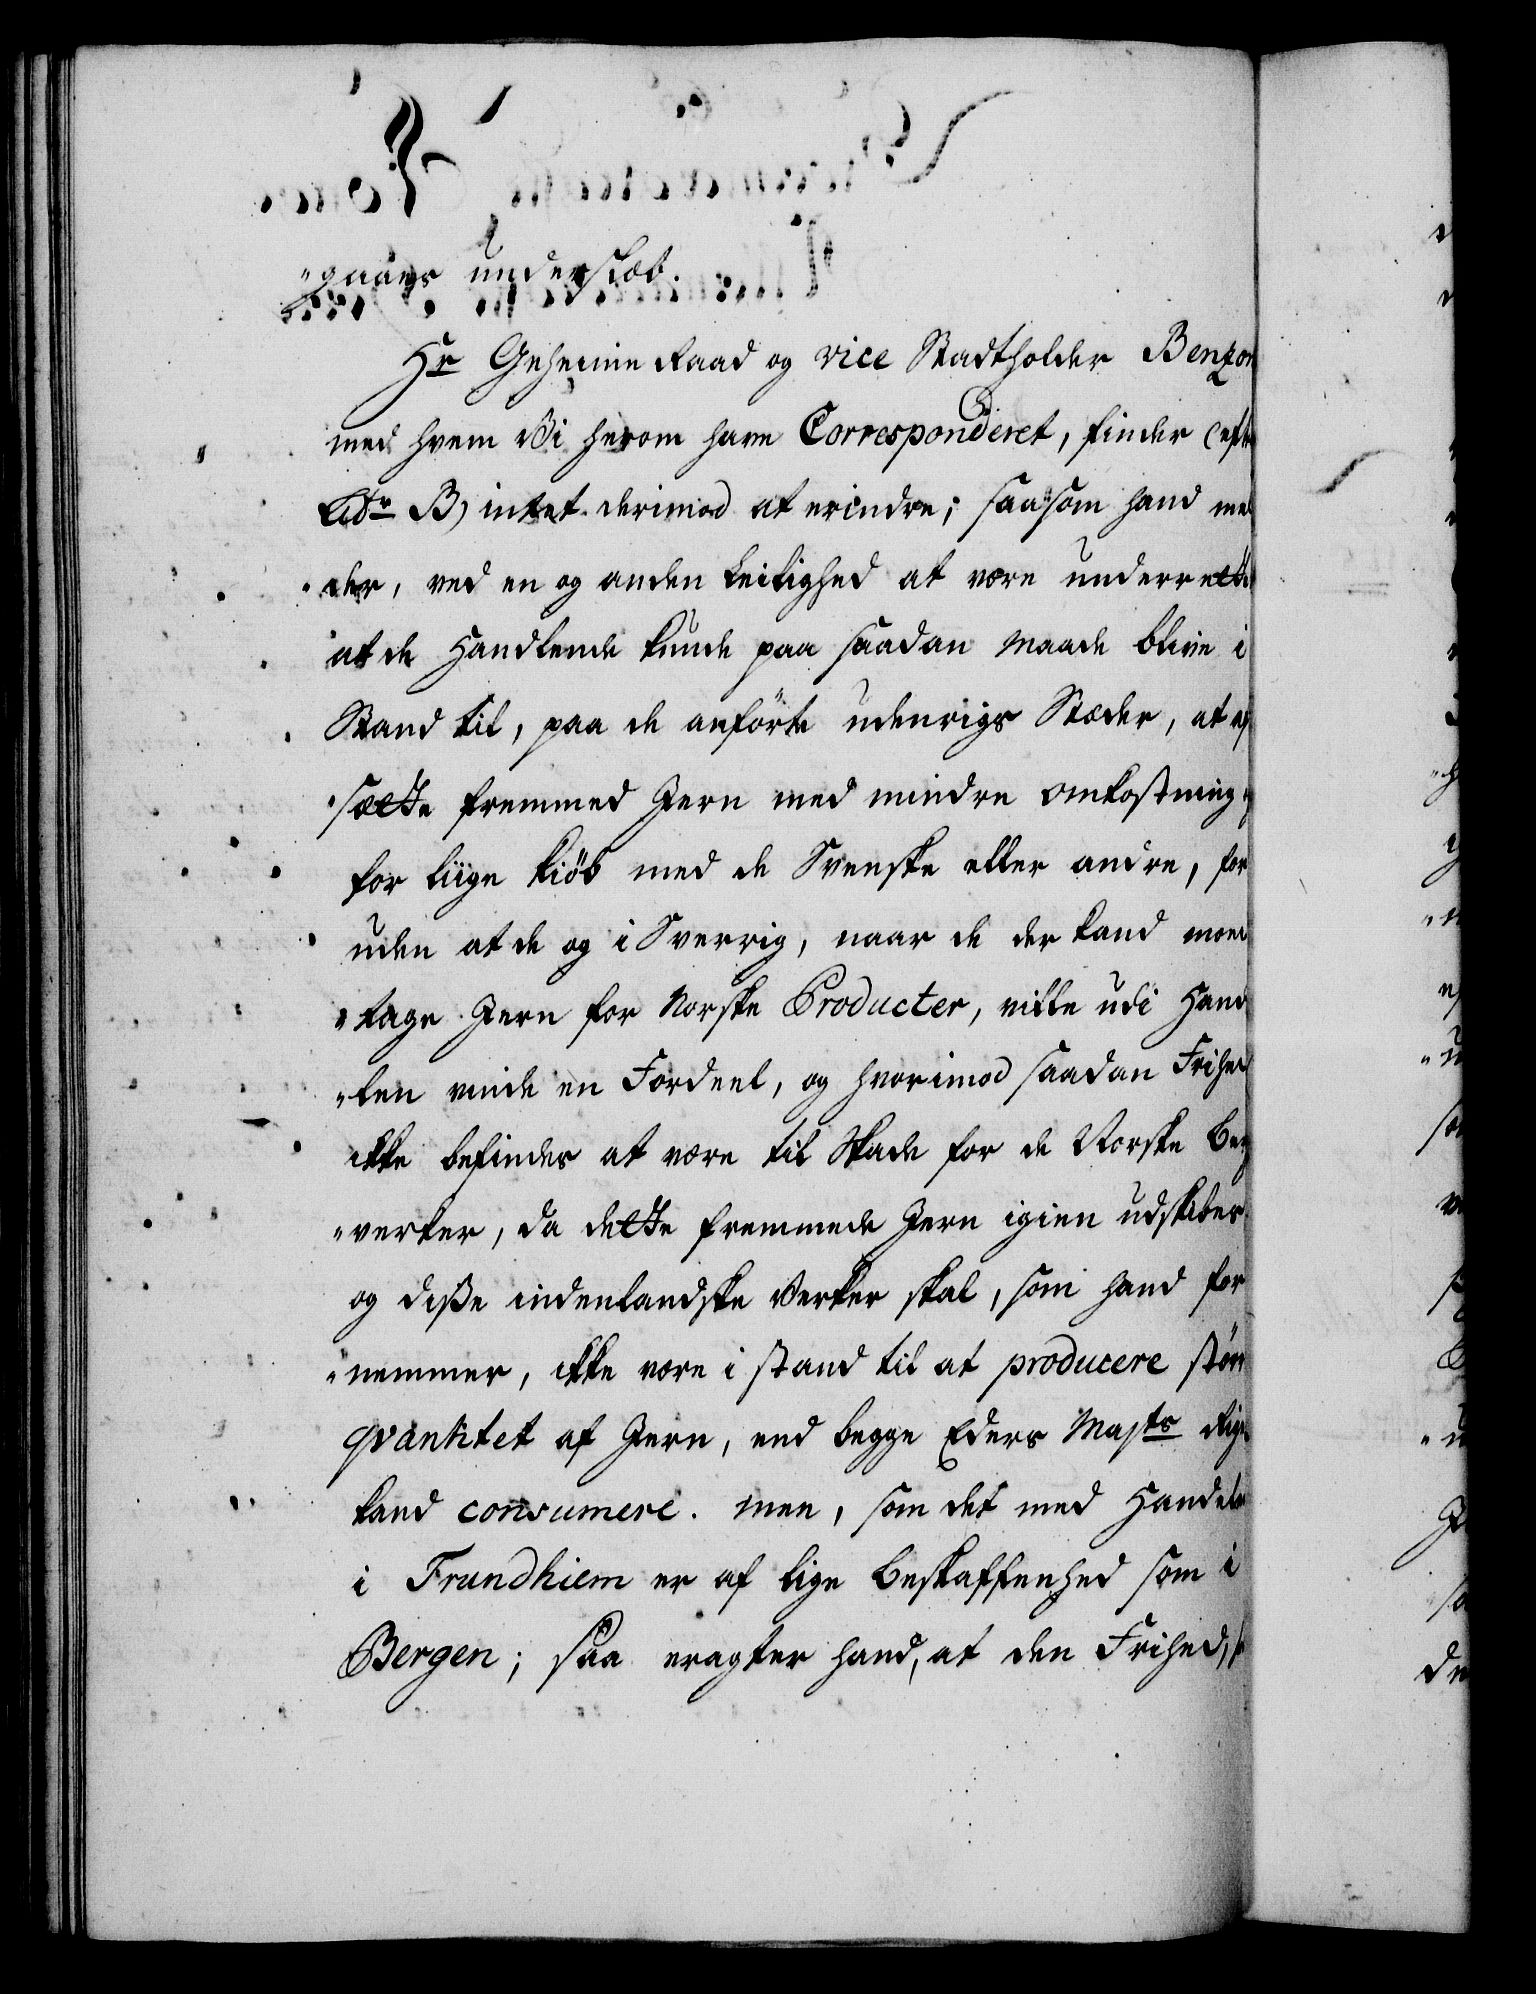 "gaaes underslæb.
Hr Geheime Raad og vice Stadtholder Benzon
med hvem Vi herom have Corresponderet, finder (efter
Litr B) intet derimod at erindre; saasom hand mel
"der, ved en og anden Leilighed at være underrettet
at de Handlende kunde paa saadan Maade blive i
Stand til, paa de anförte udenrigs Stæder, at af
"sætte fremmed Jern med mindre omkostning og
for liige kiöb med de Svenske eller andre, for
uden at de og i Sverrig, naar de der kand mod
"tage Jern for Norske Producter, ville udi Hand
"len vinde en Fordeel, og hvorimod saadan Frihed
ikke befindes at være til Skade for de Norske Berg
"verker, da dette fremmede Jern igien udskibes
og diße indenlandske Verker skal, som hand for
"nemmer, ikke være i stand til at producere större
qvantitet af Jern, end begge Eders Majts Riger
kand consumere. men, som det med Handelen
i Trundhiem er af lige beskaffenhed som i
Bergen; saa eragter hand, at den Frihed,